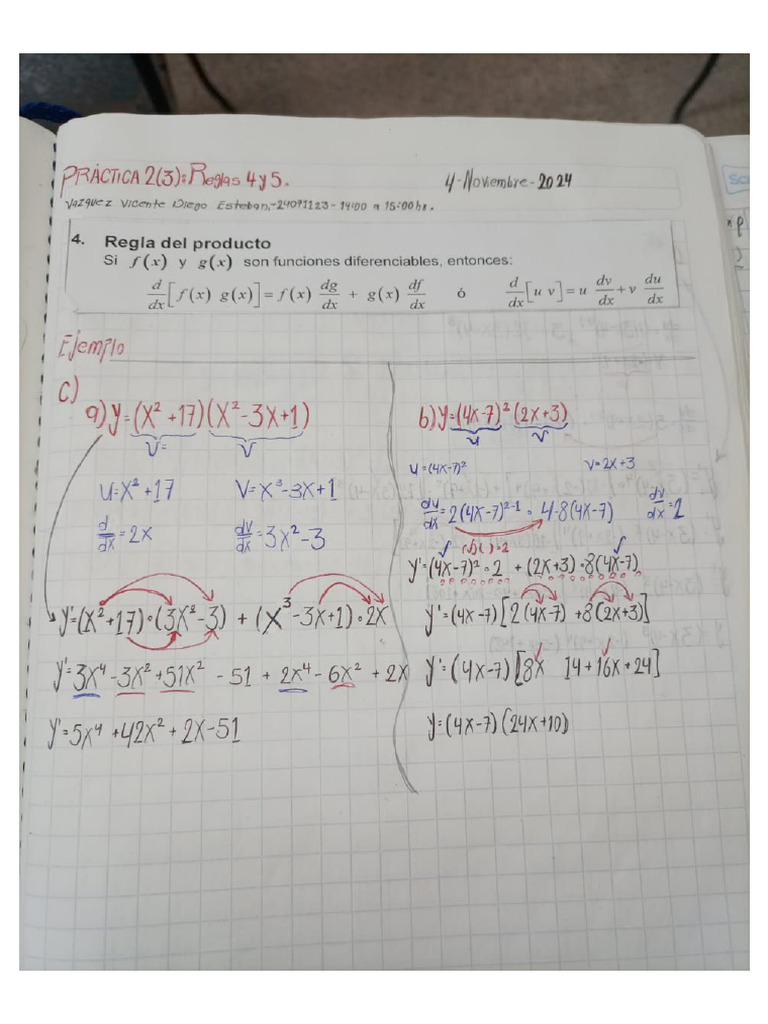 PRÁCTICA 2(3): Reglas 4 y 5.
4-Noviembre-2024
Vazquez Vicente Diego Esteban,-24091123-14:00 a 15:00hr.
4. Regla del producto
Si f(x) y g(x) son funciones diferenciables, entonces:
d/dx[f(x) g(x)] = f(x) dg/dx + g(x) df/dx ó d/dx[u v] = u dv/dx + v du/dx
Ejemplo
C)
a) y=(x²+17)(x²-3x+1)
V= V
u=x²+17 V=x³-3x+1
d/dx=2x dv/dx=3x²-3
y'=(x²+17)·(3x²-3)+(x³-3x+1)·2x
y'=3x⁴-3x²+51x²-51+2x⁴-6x²+2x
y'=5x⁴+42x²+2x-51
b) y=(4x-7)²(2x+3)
u V
u=(4x-7)² v=2x+3
du/dx=2(4x-7)²⁻¹·4-8(4x-7) dv/dx=2
y'=(4x-7)²·2+(2x+3)·8(4x-7)
y'=(4x-7)[2(4x-7)+8(2x+3)]
y'=(4x-7)[8x 14+16x+24]
y=(4x-7)(24x+10)